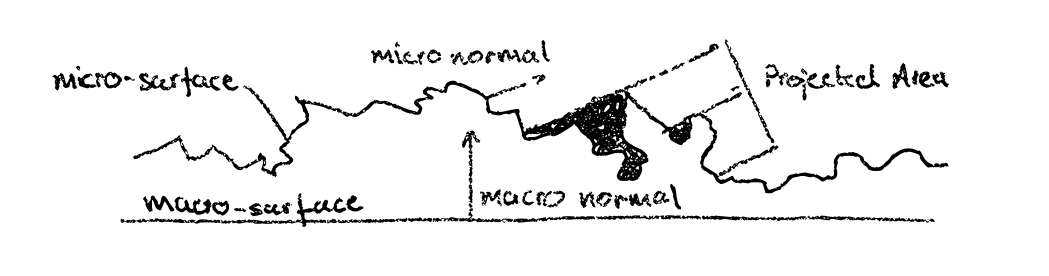 micro normal
micro-surface
Projected Area
macro-surface
macro normal